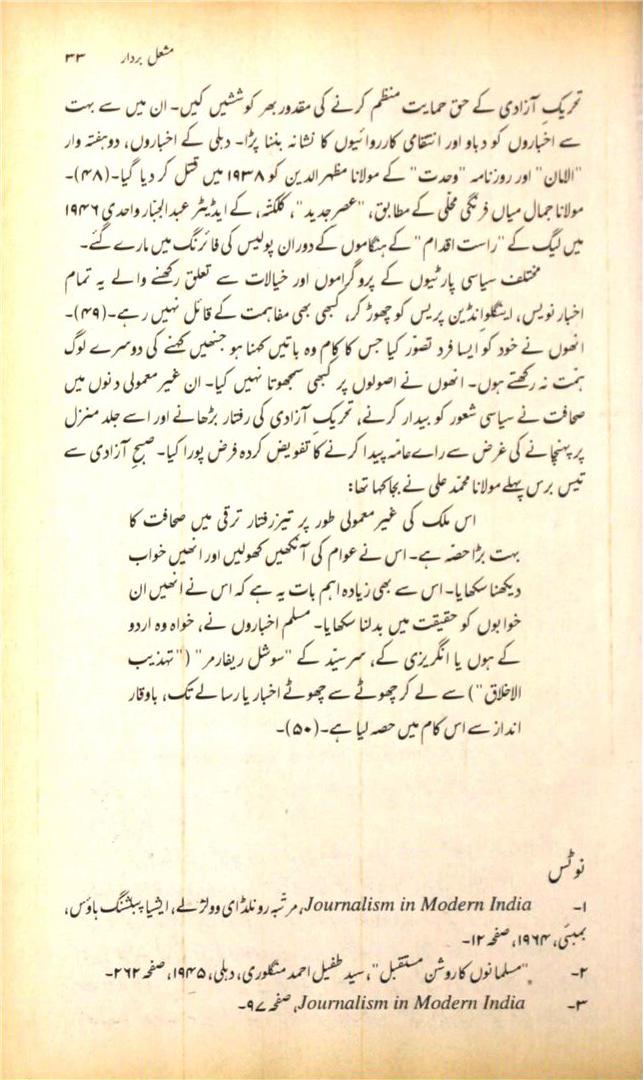 مشعل بردار ۳۳
تحریکِ آزادی کے حق حمایت منظم کرنے کی مقدور بھر کوششیں کیں۔ ان میں سے بہت
سے اخباروں کو دباو اور انتقامی کارروائیوں کا نشانہ بننا پڑا۔ دہلی کے اخباروں، دو ہفتہ وار
"الامان" اور روزنامہ "وحدت" کے مولانا مظہرالدین کو ۱۹۳۸ میں قتل کر دیا گیا۔(۴۸)۔
مولانا جمال میاں فرنگی محلّی کے مطابق، "عصر جدید"، کلکتہ، کے ایڈیٹر عبدالجبار واحدی ۱۹۴۶
میں لیگ کے "راست اقدام" کے ہنگاموں کے دوران پولیس کی فائرنگ میں مارے گئے۔
مختلف سیاسی پارٹیوں کے پروگراموں اور خیالات سے تعلق رکھنے والے یہ تمام
اخبار نویس، اینگلو انڈین پریس کو چھوڑ کر، کبھی بھی مفاہمت کے قائل نہیں رہے۔(۴۹)۔
انھوں نے خود کو ایسا فرد تصوّر کیا جس کا کام وہ باتیں کہنا ہو جنھیں کہنے کی دوسرے لوگ
ہمّت نہ رکھتے ہوں۔ انھوں نے اصولوں پر کبھی سمجھوتا نہیں کیا۔ ان غیر معمولی دنوں میں
صحافت نے سیاسی شعور کو بیدار کرنے، تحریکِ آزادی کی رفتار بڑھانے اور اسے جلد منزل
پر پہنچانے کی غرض سے راے عامّہ پیدا کرنے کا تفویض کردہ فرض پورا کیا۔ صبحِ آزادی سے
تیس برس پہلے مولانا محمّد علی نے بجا کہا تھا:
اس ملک کی غیر معمولی طور پر تیز رفتار ترقی میں صحافت کا
بہت بڑا حصّہ ہے۔ اس نے عوام کی آنکھیں کھولیں اور انھیں خواب
دیکھنا سکھایا۔ اس سے بھی زیادہ اہم بات یہ ہے کہ اس نے انھیں ان
خوابوں کو حقیقت میں بدلنا سکھایا۔ مسلم اخباروں نے، خواہ وہ اردو
کے ہوں یا انگریزی کے، سر سیّد کے "سوشل ریفارمر" ("تہذیب
الاخلاق") سے لے کر چھوٹے سے چھوٹے اخبار یا رسالے تک، باوقار
انداز سے اس کام میں حصہ لیا ہے۔(۵۰)۔
نوٹس
۱۔ Journalism in Modern India، مرتّبہ رونلڈ ای وولزلے، ایشیا پبلشنگ ہاؤس،
بمبئی، ۱۹۶۴، صفحہ ۱۲۔
۲۔ "مسلمانوں کا روشن مستقبل"، سید طفیل احمد منگلوری، دہلی، ۱۹۴۵، صفحہ ۲۶۲۔
۳۔ Journalism in Modern India، صفحہ ۹۷۔